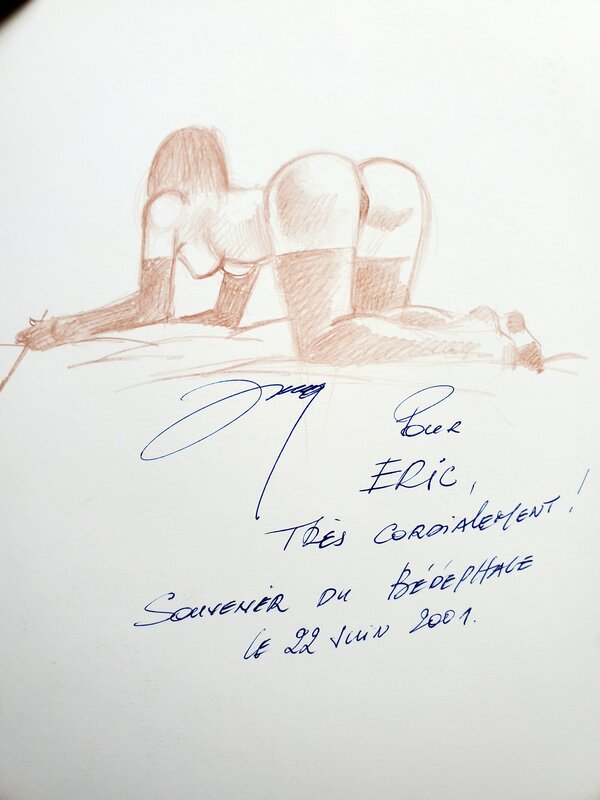 Pour
ERIC,
TRÈS CORDIALEMENT!
SOUVENIR DU BÉDÉPHAGE
LE 22 JUIN 2001.